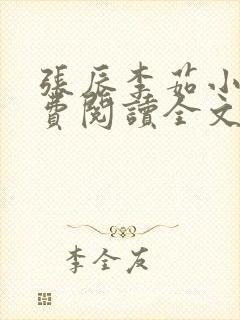 張辰李茹小
費閱讀全文
李全友